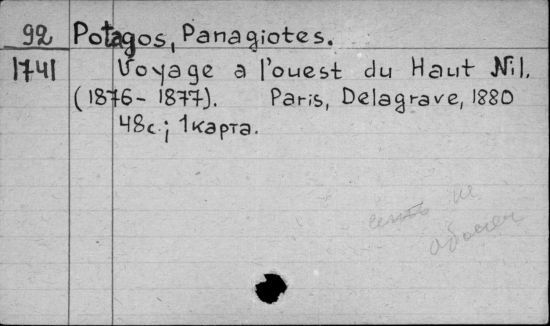 92 Potagos, Panagiotes.
1741 Voyage a l'ouest du Haut Nil.
(1876-1877). Paris, Delagrave, 1880
48с.; 1карта.